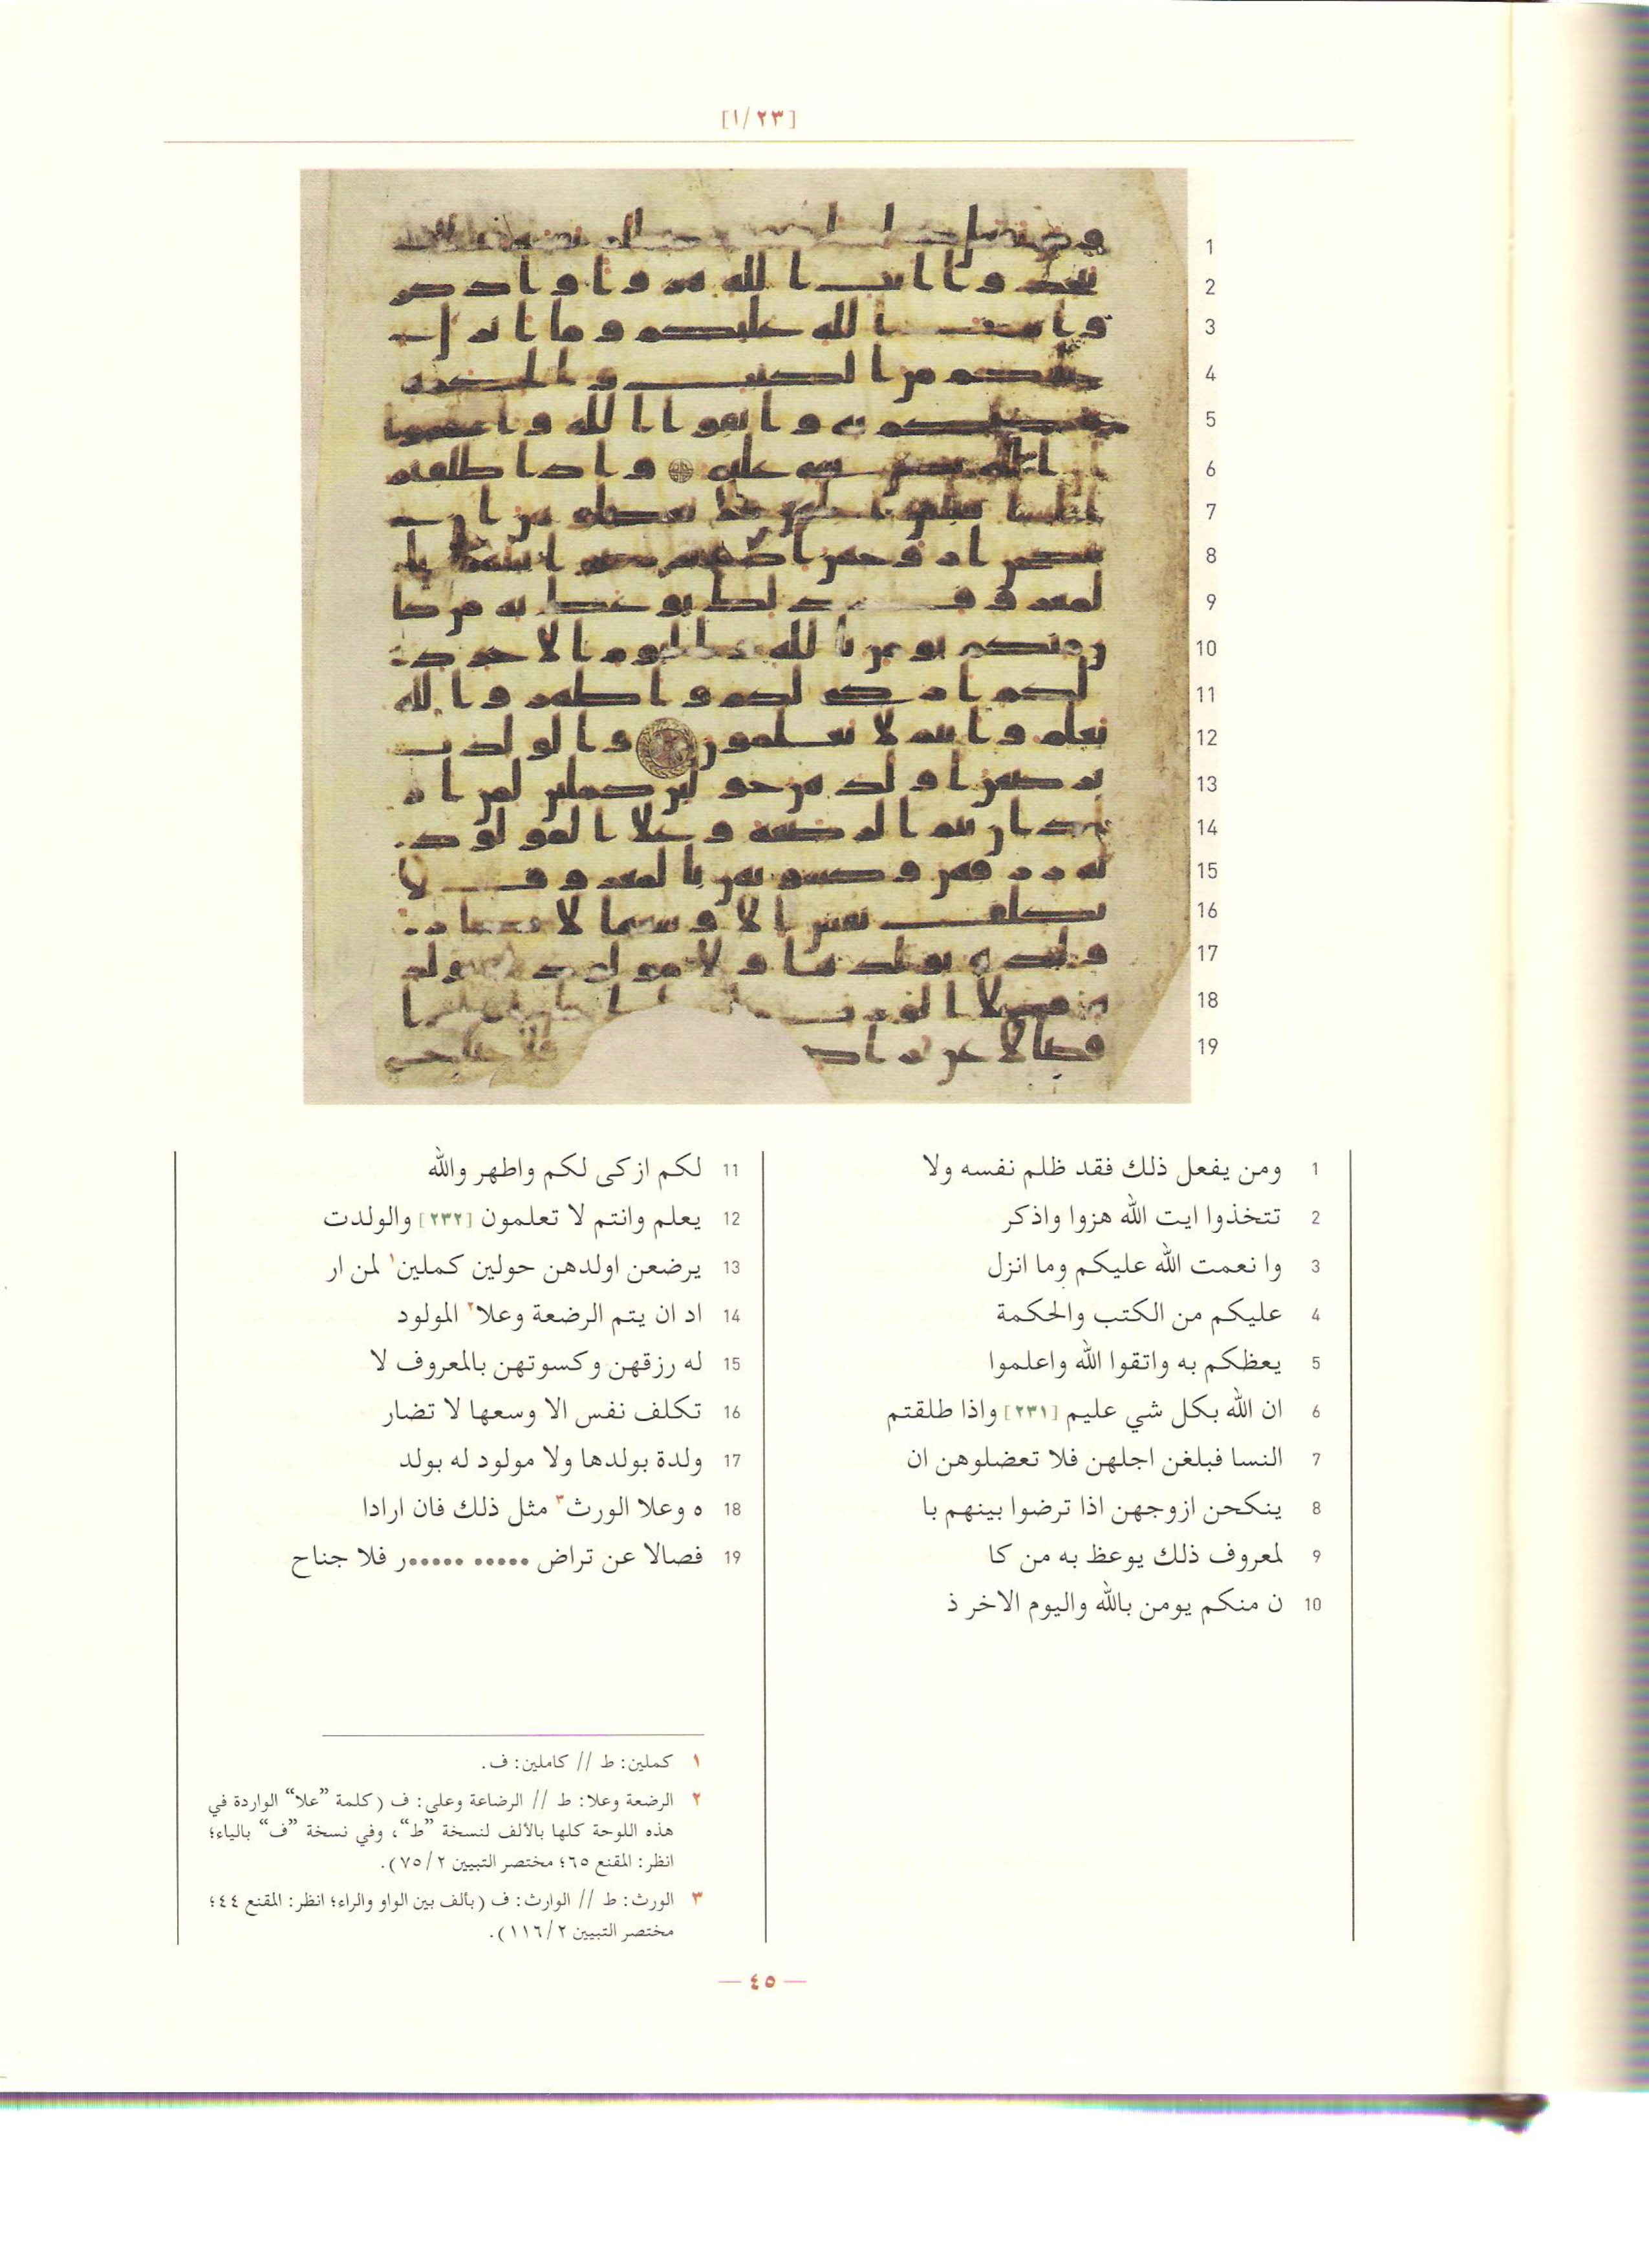 [١/٢٣]
1 ومن يفعل ذلك فقد ظلم نفسه ولا
2 تتخذوا ايت الله هزوا واذكر
3 وا نعمت الله عليكم وما انزل
4 عليكم من الكتب والحكمة
5 يعظكم به واتقوا الله واعلموا
6 ان الله بكل شي عليم [٢٣١] واذا طلقتم
7 النسا فبلغن اجلهن فلا تعضلوهن ان
8 ينكحن ازوجهن اذا ترضوا بينهم با
9 لمعروف ذلك يوعظ به من كا
10 ن منكم يومن بالله واليوم الاخر ذ
11 لكم ازكى لكم واطهر والله
12 يعلم وانتم لا تعلمون [٢٣٢] والولدت
13 يرضعن اولدهن حولين كملين١ لمن ار
14 اد ان يتم الرضعة وعلا٢ المولود
15 له رزقهن وكسوتهن بالمعروف لا
16 تكلف نفس الا وسعها لا تضار
17 ولدة بولدها ولا مولود له بولد
18 ه وعلا الورث٣ مثل ذلك فان ارادا
19 فصالا عن تراض ••••• •••••ر فلا جناح
١ كملين: ط // كاملين: ف.
٢ الرضعة وعلا: ط // الرضاعة وعلى: ف (كلمة ”علا“ الواردة في
هذه اللوحة كلها بالألف لنسخة ”ط“، وفي نسخة ”ف“ بالياء؛
انظر: المقنع ٦٥؛ مختصر التبيين ٧٥/٢).
٣ الورث: ط // الوارث: ف (بألف بين الواو والراء؛ انظر: المقنع ٤٤؛
مختصر التبيين ١١٦/٢).
— ٤٥ —